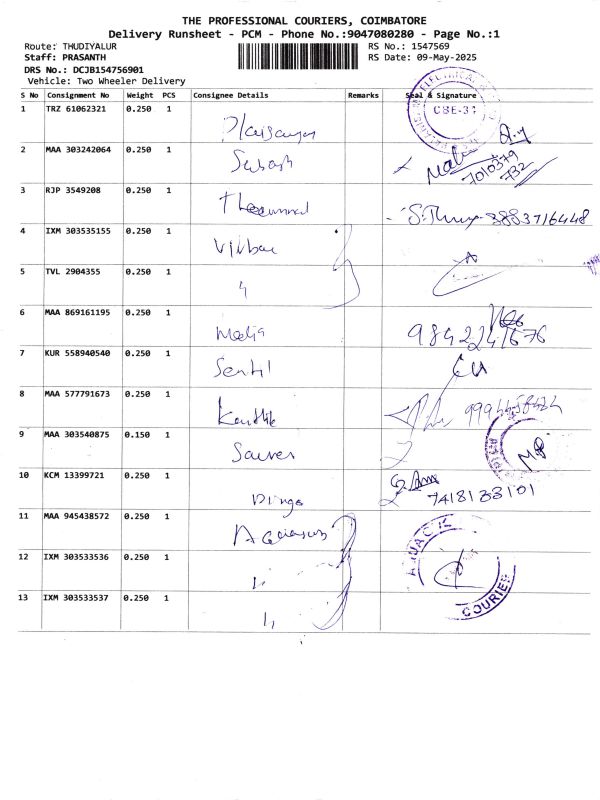 THE PROFESSIONAL COURIERS, COIMBATORE
Delivery Runsheet - PCM - Phone No.:9047080280 - Page No.:1
Route: THUDIYALUR RS No.: 1547569
Staff: PRASANTH RS Date: 09-May-2025
DRS No.: DCJB154756901
Vehicle: Two Wheeler Delivery
S No Consignment No Weight PCS Consignee Details Remarks Seal & Signature
1 TRZ 61062321 0.250 1 CBE-31
2 MAA 303242064 0.250 1 Subash 7010379 732
3 RJP 3549208 0.250 1 8883716448
4 IXM 303535155 0.250 1
5 TVL 2904355 0.250 1 "
6 MAA 869161195 0.250 1 9842241676
7 KUR 558940540 0.250 1 Sentil
8 MAA 577791673 0.250 1 Karthik 9994458424
9 MAA 303540875 0.150 1
10 KCM 13399721 0.250 1 7418133101
11 MAA 945438572 0.250 1
12 IXM 303533536 0.250 1 "
13 IXM 303533537 0.250 1 "
COURIER